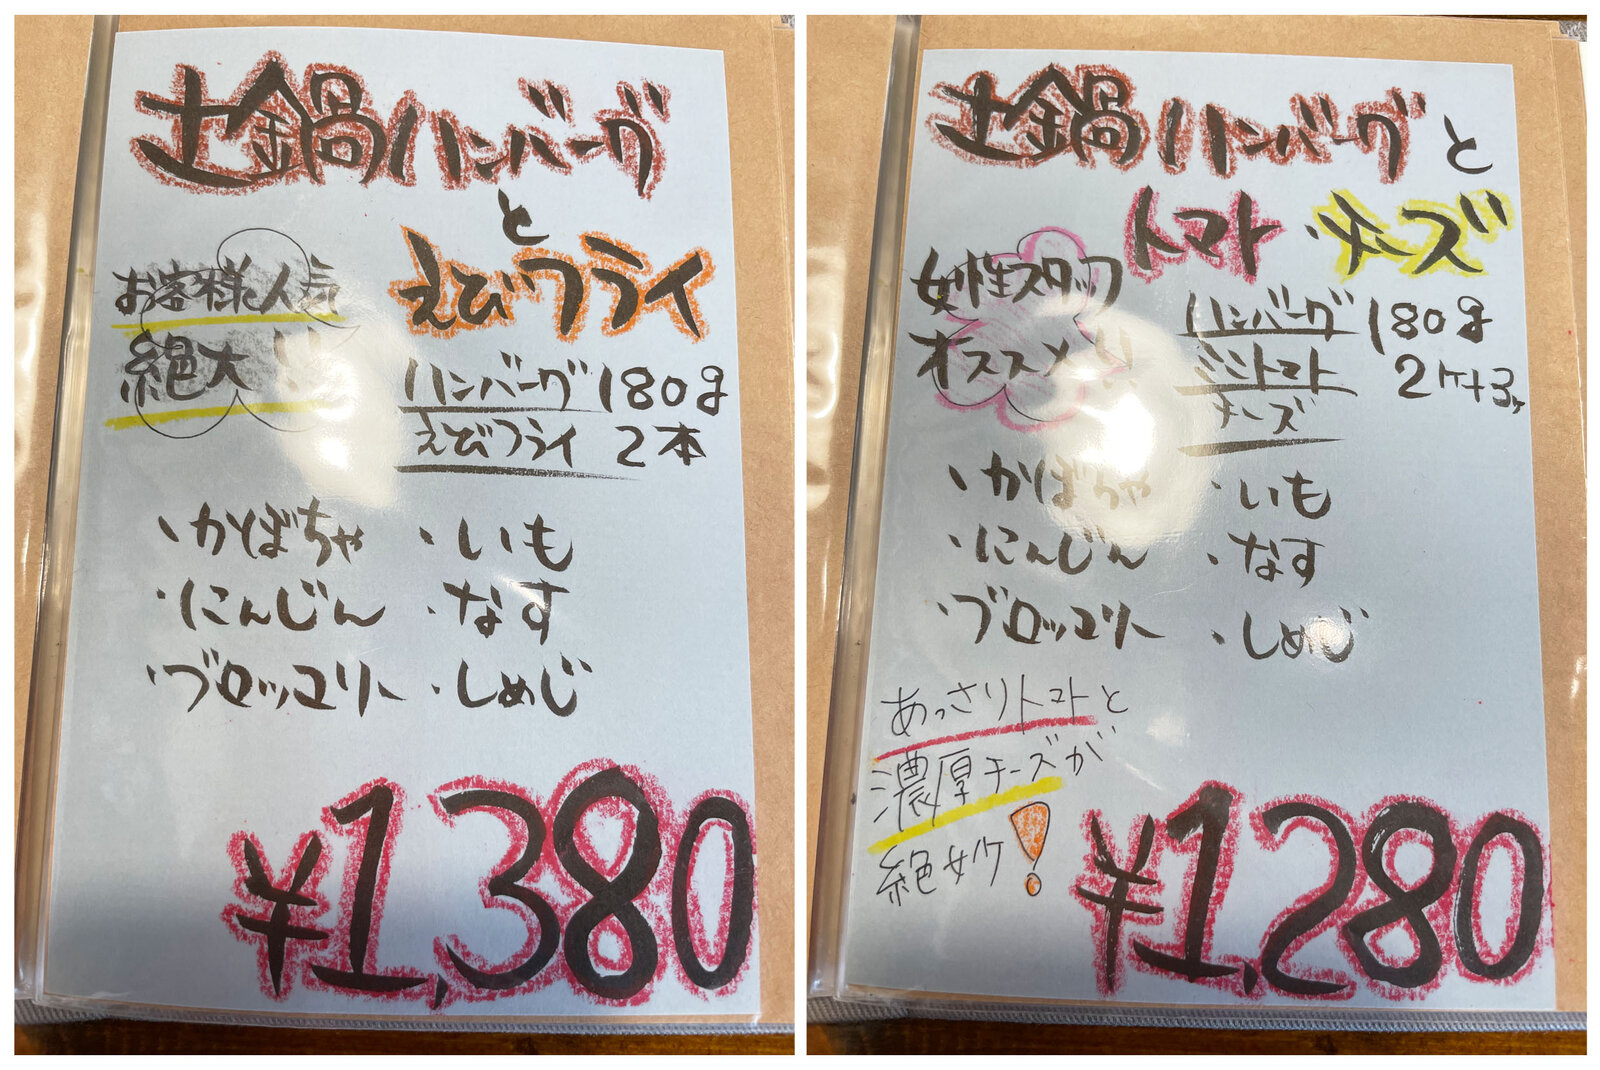 土鍋ハンバーグ
と
えびフライ
お客様人気
絶大!!
ハンバーグ 180g
えびフライ 2本
・かぼちゃ ・いも
・にんじん ・なす
・ブロッコリー ・しめじ
¥1,380
土鍋ハンバーグと
トマト・チーズ
女性スタッフ
オススメ!!
ハンバーグ 180g
ミニトマト 2ヶ+3ヶ
チーズ
・かぼちゃ ・いも
・にんじん ・なす
・ブロッコリー ・しめじ
あっさりトマトと
濃厚チーズが
絶妙!
¥1,280